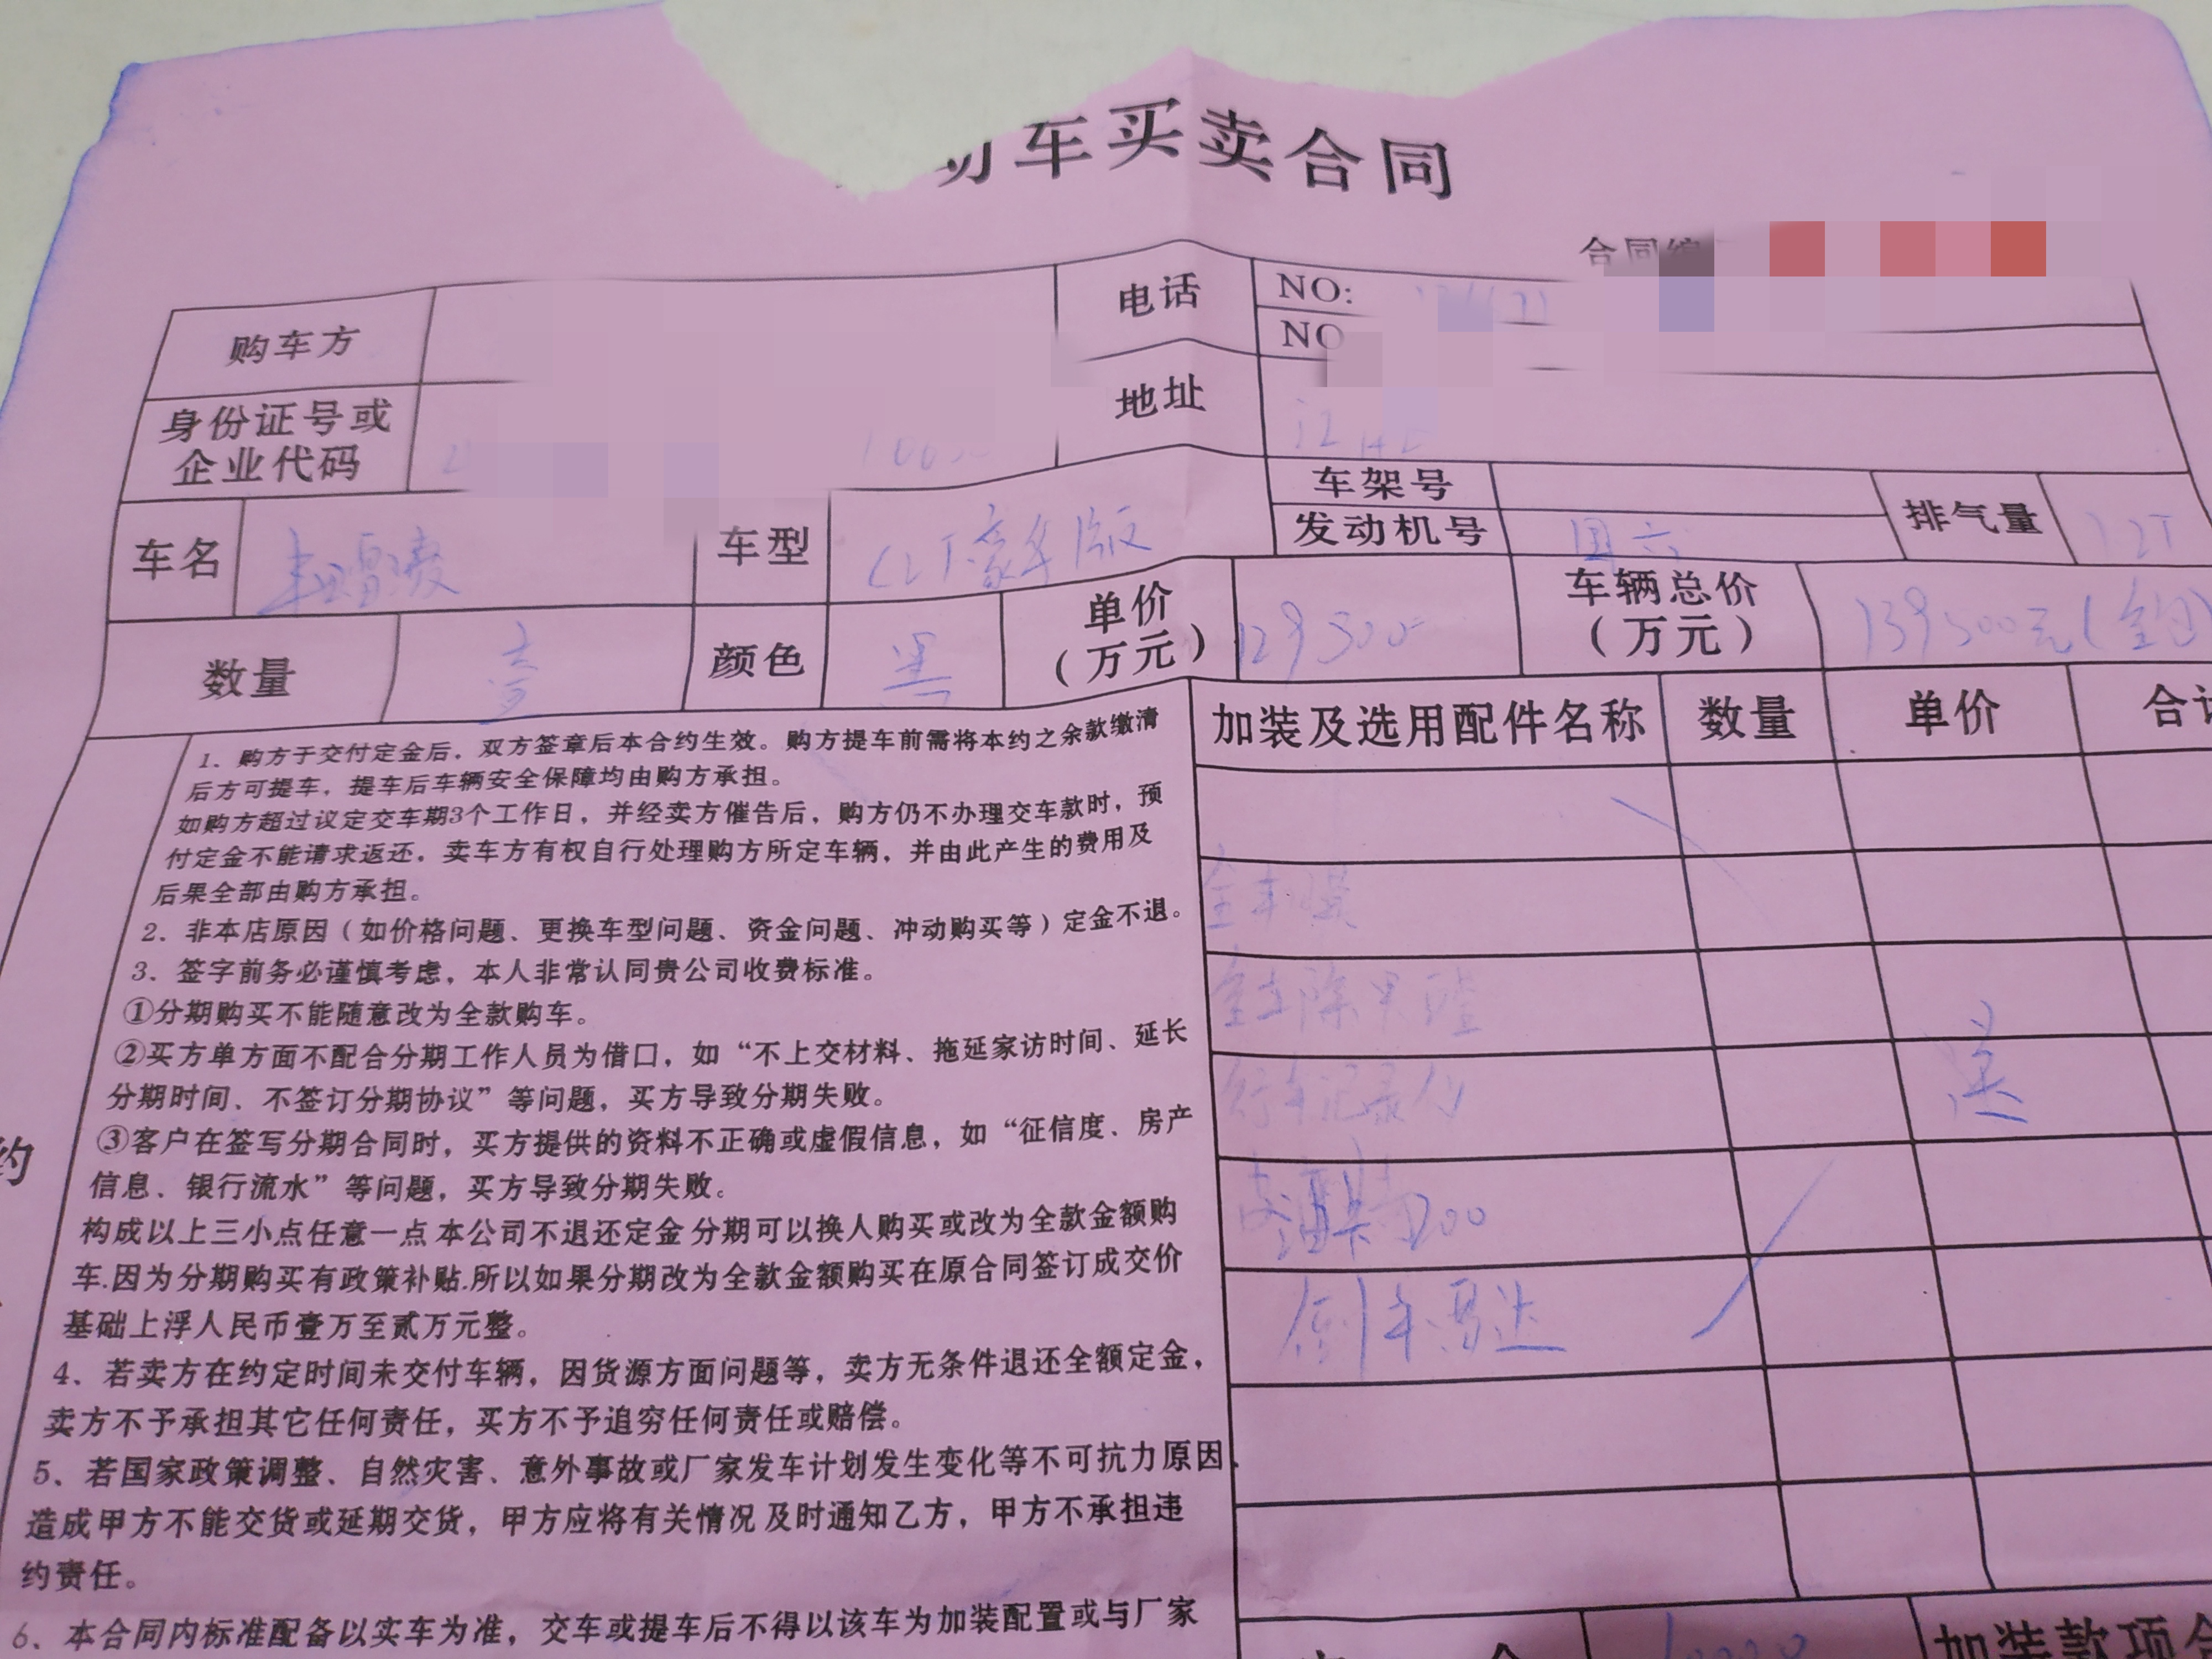 车买卖合同
合同编
购车方
电话
NO:
NO
身份证号或
企业代码
地址
江
车名
丰田雷凌
车型
豪华版
车架号
发动机号
国六
排气量
12T
数量
壹
颜色
黑
单价
(万元)
129500
车辆总价
(万元)
139500元(全包)
1、购方于交付定金后，双方签章后本合约生效。购方提车前需将本约之余款缴清
后方可提车，提车后车辆安全保障均由购方承担。
如购方超过议定交车期3个工作日，并经卖方催告后，购方仍不办理交车款时，预
付定金不能请求返还，卖车方有权自行处理购方所定车辆，并由此产生的费用及
后果全部由购方承担。
2、非本店原因（如价格问题、更换车型问题、资金问题、冲动购买等）定金不退。
3、签字前务必谨慎考虑，本人非常认同贵公司收费标准。
①分期购买不能随意改为全款购车。
②买方单方面不配合分期工作人员为借口，如“不上交材料、拖延家访时间、延长
分期时间、不签订分期协议”等问题，买方导致分期失败。
③客户在签写分期合同时，买方提供的资料不正确或虚假信息，如“征信度、房产
信息、银行流水”等问题，买方导致分期失败。
构成以上三小点任意一点本公司不退还定金分期可以换人购买或改为全款金额购
车.因为分期购买有政策补贴.所以如果分期改为全款金额购买在原合同签订成交价
基础上浮人民币壹万至贰万元整。
4、若卖方在约定时间未交付车辆，因货源方面问题等，卖方无条件退还全额定金，
卖方不予承担其它任何责任，买方不予追穷任何责任或赔偿。
5、若国家政策调整、自然灾害、意外事故或厂家发车计划发生变化等不可抗力原因
造成甲方不能交货或延期交货，甲方应将有关情况及时通知乙方，甲方不承担违
约责任。
6、本合同内标准配备以实车为准，交车或提车后不得以该车为加装配置或与厂家
约
加装及选用配件名称
数量
单价
合计
全车膜
全车除甲醛
行车记录仪
送
油卡200
倒车雷达
10000
加装款项合